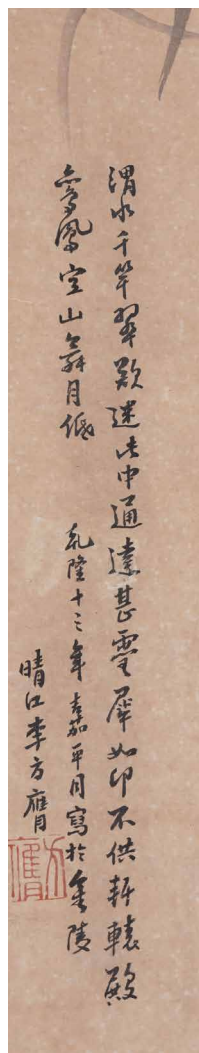 渭水千竿翠欲迷此中通達甚靈犀如何不供軒轅殿
鸞鳳空山舞月低 乾隆十三年嘉平月寫於金陵
晴江李方膺
方膺